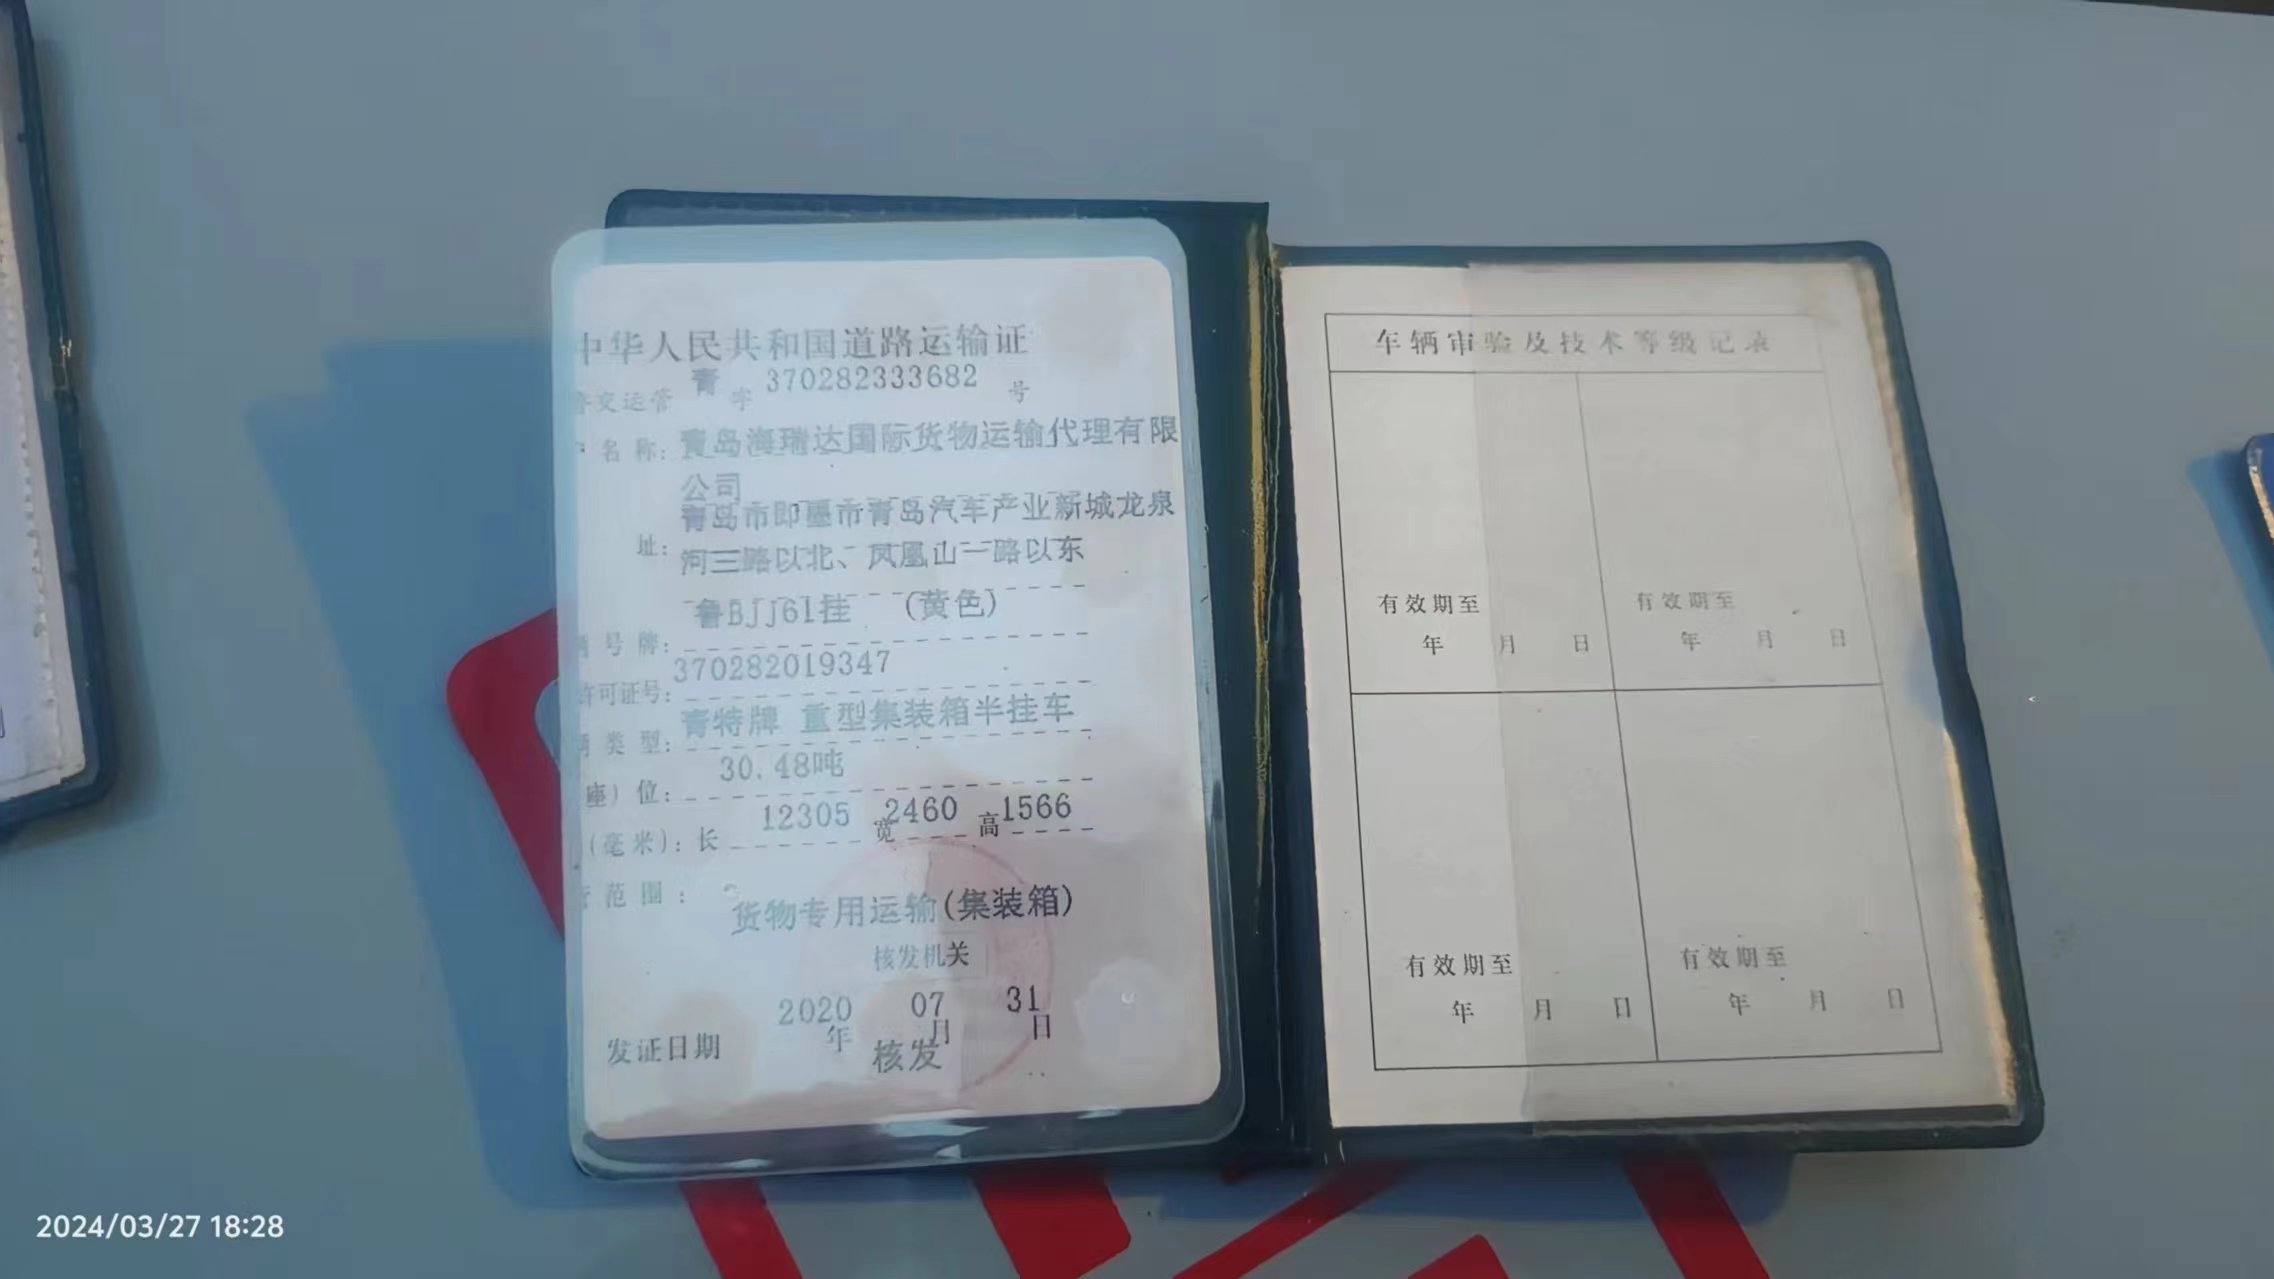 中华人民共和国道路运输证
鲁交运管 青 字 370282333682 号
户名称: 青岛海瑞达国际货物运输代理有限
公司
青岛市即墨市青岛汽车产业新城龙泉
址: 河三路以北、凤凰山一路以东
鲁BJJ61挂 (黄色)
号牌:
370282019347
许可证号:
青特牌 重型集装箱半挂车
类型:
30.48吨
座)位:
(毫米): 长 12305 宽 2460 高 1566
范围:
货物专用运输(集装箱)
核发机关
2020 07 31
发证日期 年 月 日
核发
车辆审验及技术等级记录
有效期至 有效期至
年 月 日 年 月 日
有效期至 有效期至
年 月 日 年 月 日
2024/03/27 18:28